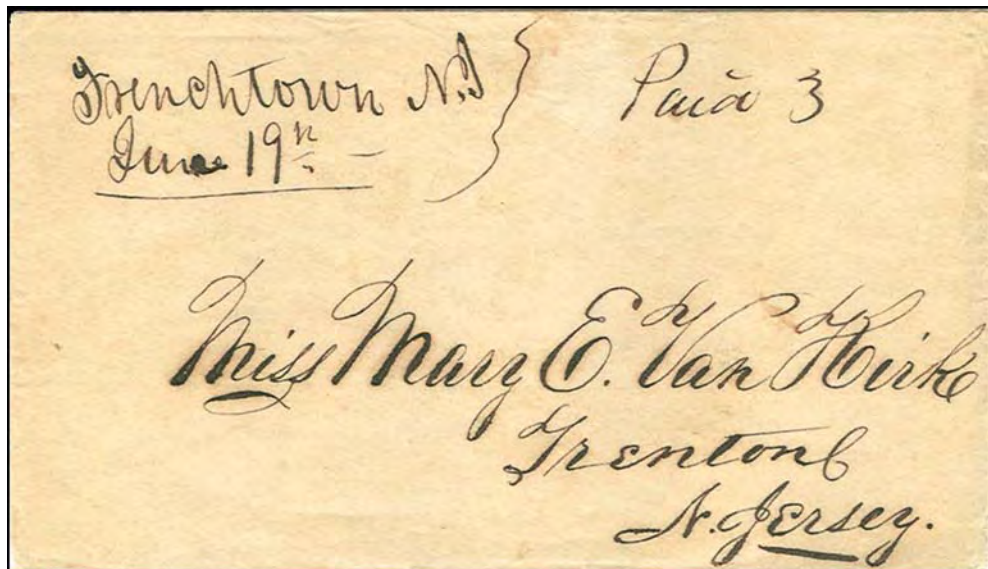 Frenchtown N.J
June 19th
Paid 3
Miss Mary E. Van Kirke
Trenton
N. Jersey.